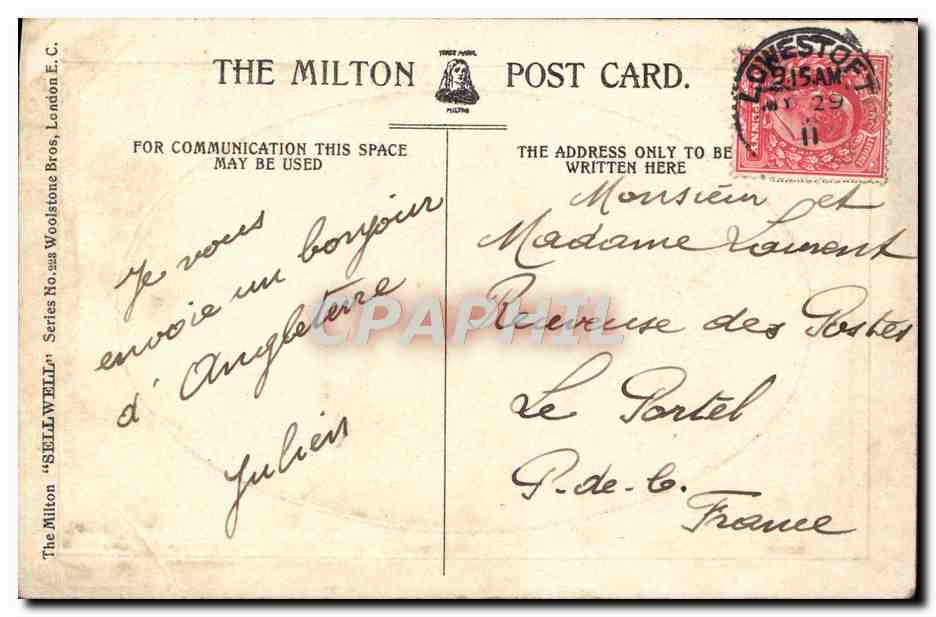 THE MILTON POST CARD.
TRADE MARK
MILTON
FOR COMMUNICATION THIS SPACE
MAY BE USED
THE ADDRESS ONLY TO BE
WRITTEN HERE
LOWESTOFT
9.15AM
29
11
Je vous
envoie un bonjour
d'Angleterre
Julien
Monsieur et
Madame Laurent
Receveuse des Postes
Le Portel
P.-de-C.
France
CPAPHIL
The Milton "SELLWELL" Series No. 223 Woolstone Bros, London E. C.